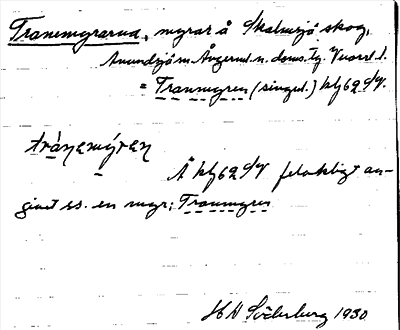 Tranemyrarna, myrar å Skalmsjö skog,
Anundsjö sn. Ångerml. n. doms. tg. Vnorrl. l.
= Tranmyren (singul.) hbf 62 S/V.
tránemýren
Å hbf 62 S/V felaktigt an-
givet ss. en myr; Tranmyren
H Söderberg 1930